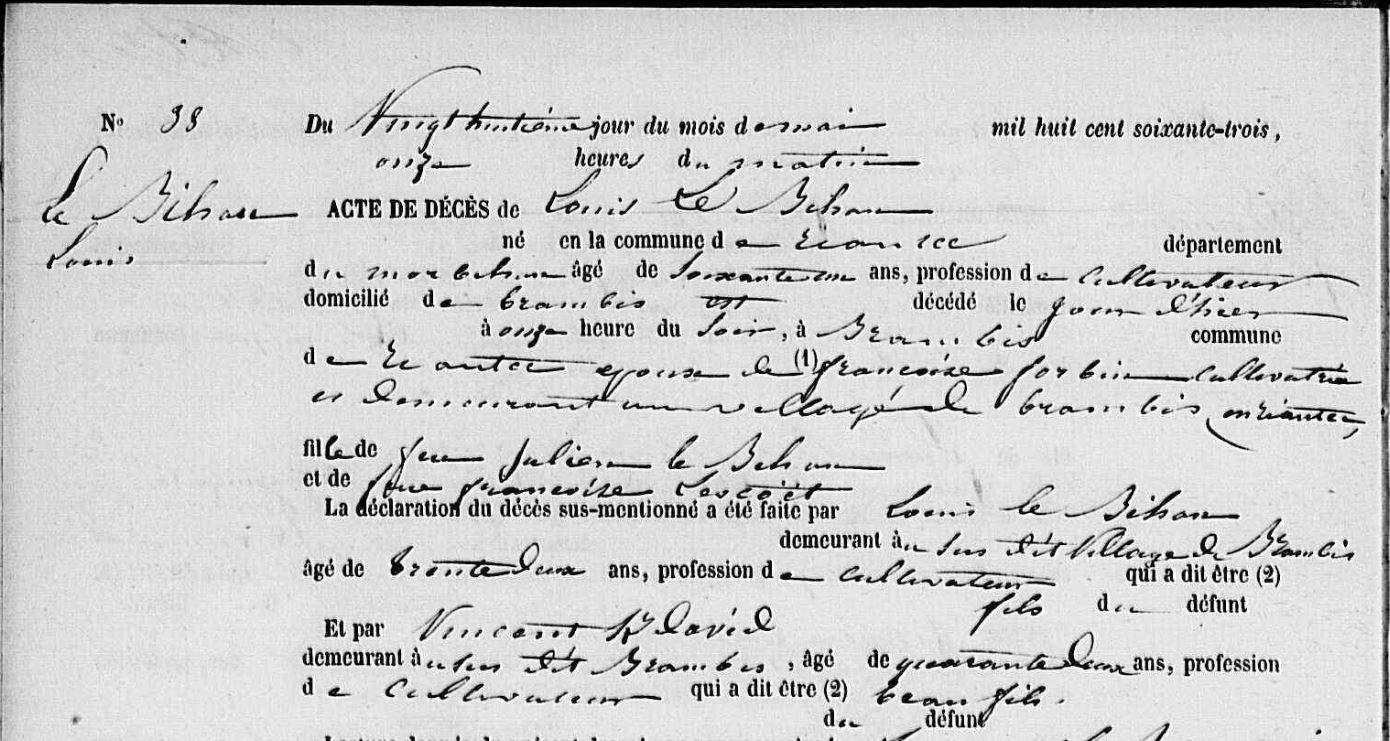 N° 38 Du Vingt huitième jour du mois de mai mil huit cent soixante-trois,
onze heures du matin
Le Bihan
Louis
ACTE DE DÉCÈS de Louis Le Bihan
né en la commune de riantec département
du morbihan âgé de soixante un ans, profession de cultivateur
domicilié de brambis est décédé le jour d'hier
à onze heure du soir, à Brambis commune
de riantec epoux de (1) francoise forbin cultivatrice
et demeurant au village de brambis en riantec,
fille de feu julien le Bihan
et de feue francoise Lescoët
La déclaration du décès sus-mentionné a été faite par Louis le Bihan
demeurant au sus dit village de Brambis
âgé de trente deux ans, profession de cultivateur qui a dit être (2)
fils du défunt
Et par Vincent david
demeurant au sus dit Brambis, âgé de quarante deux ans, profession
de cultivateur qui a dit être (2) beau fils.
du défunt